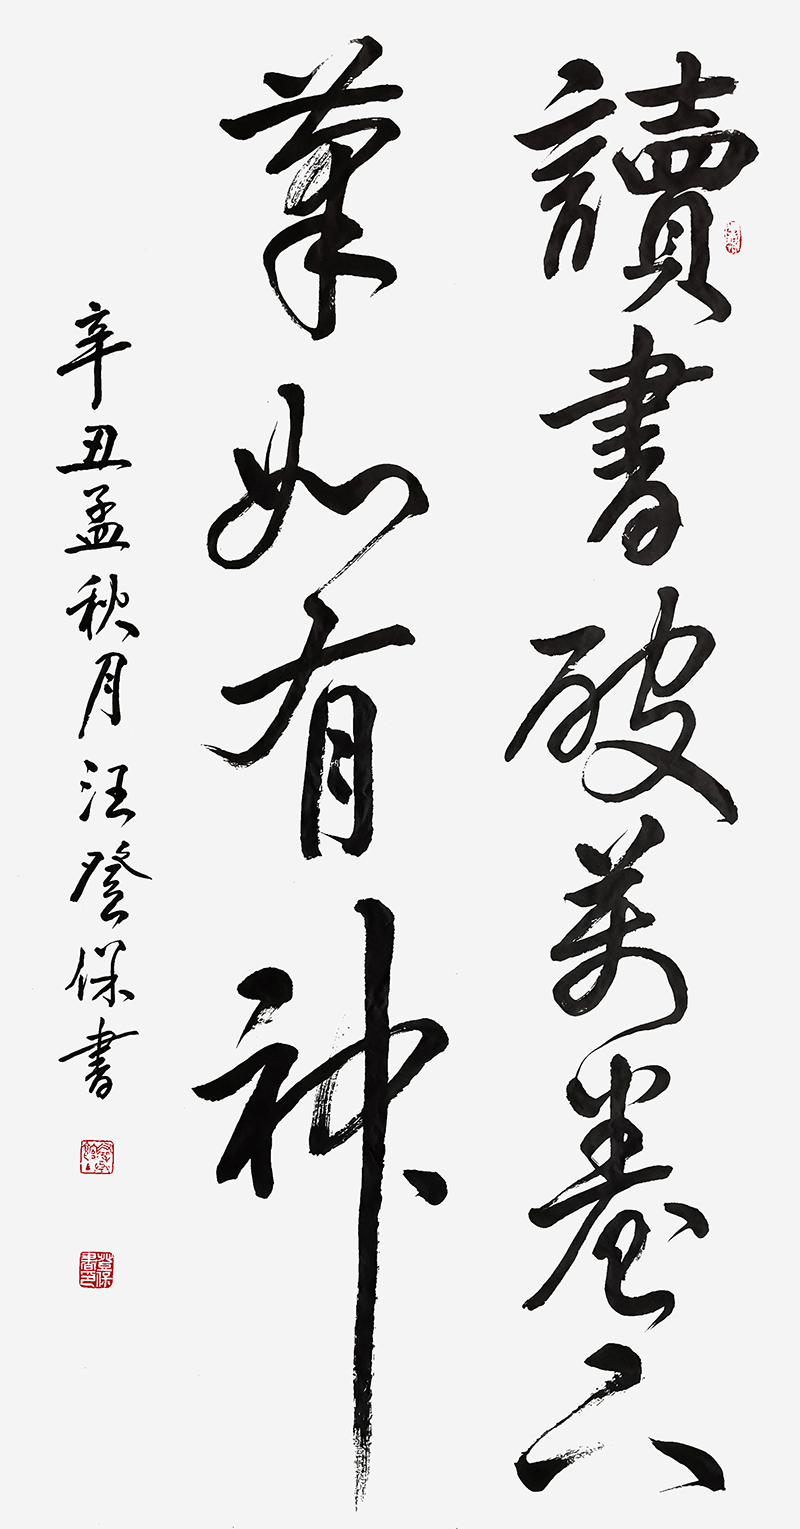 讀書破萬卷下
筆如有神
辛丑孟秋月汪登保書